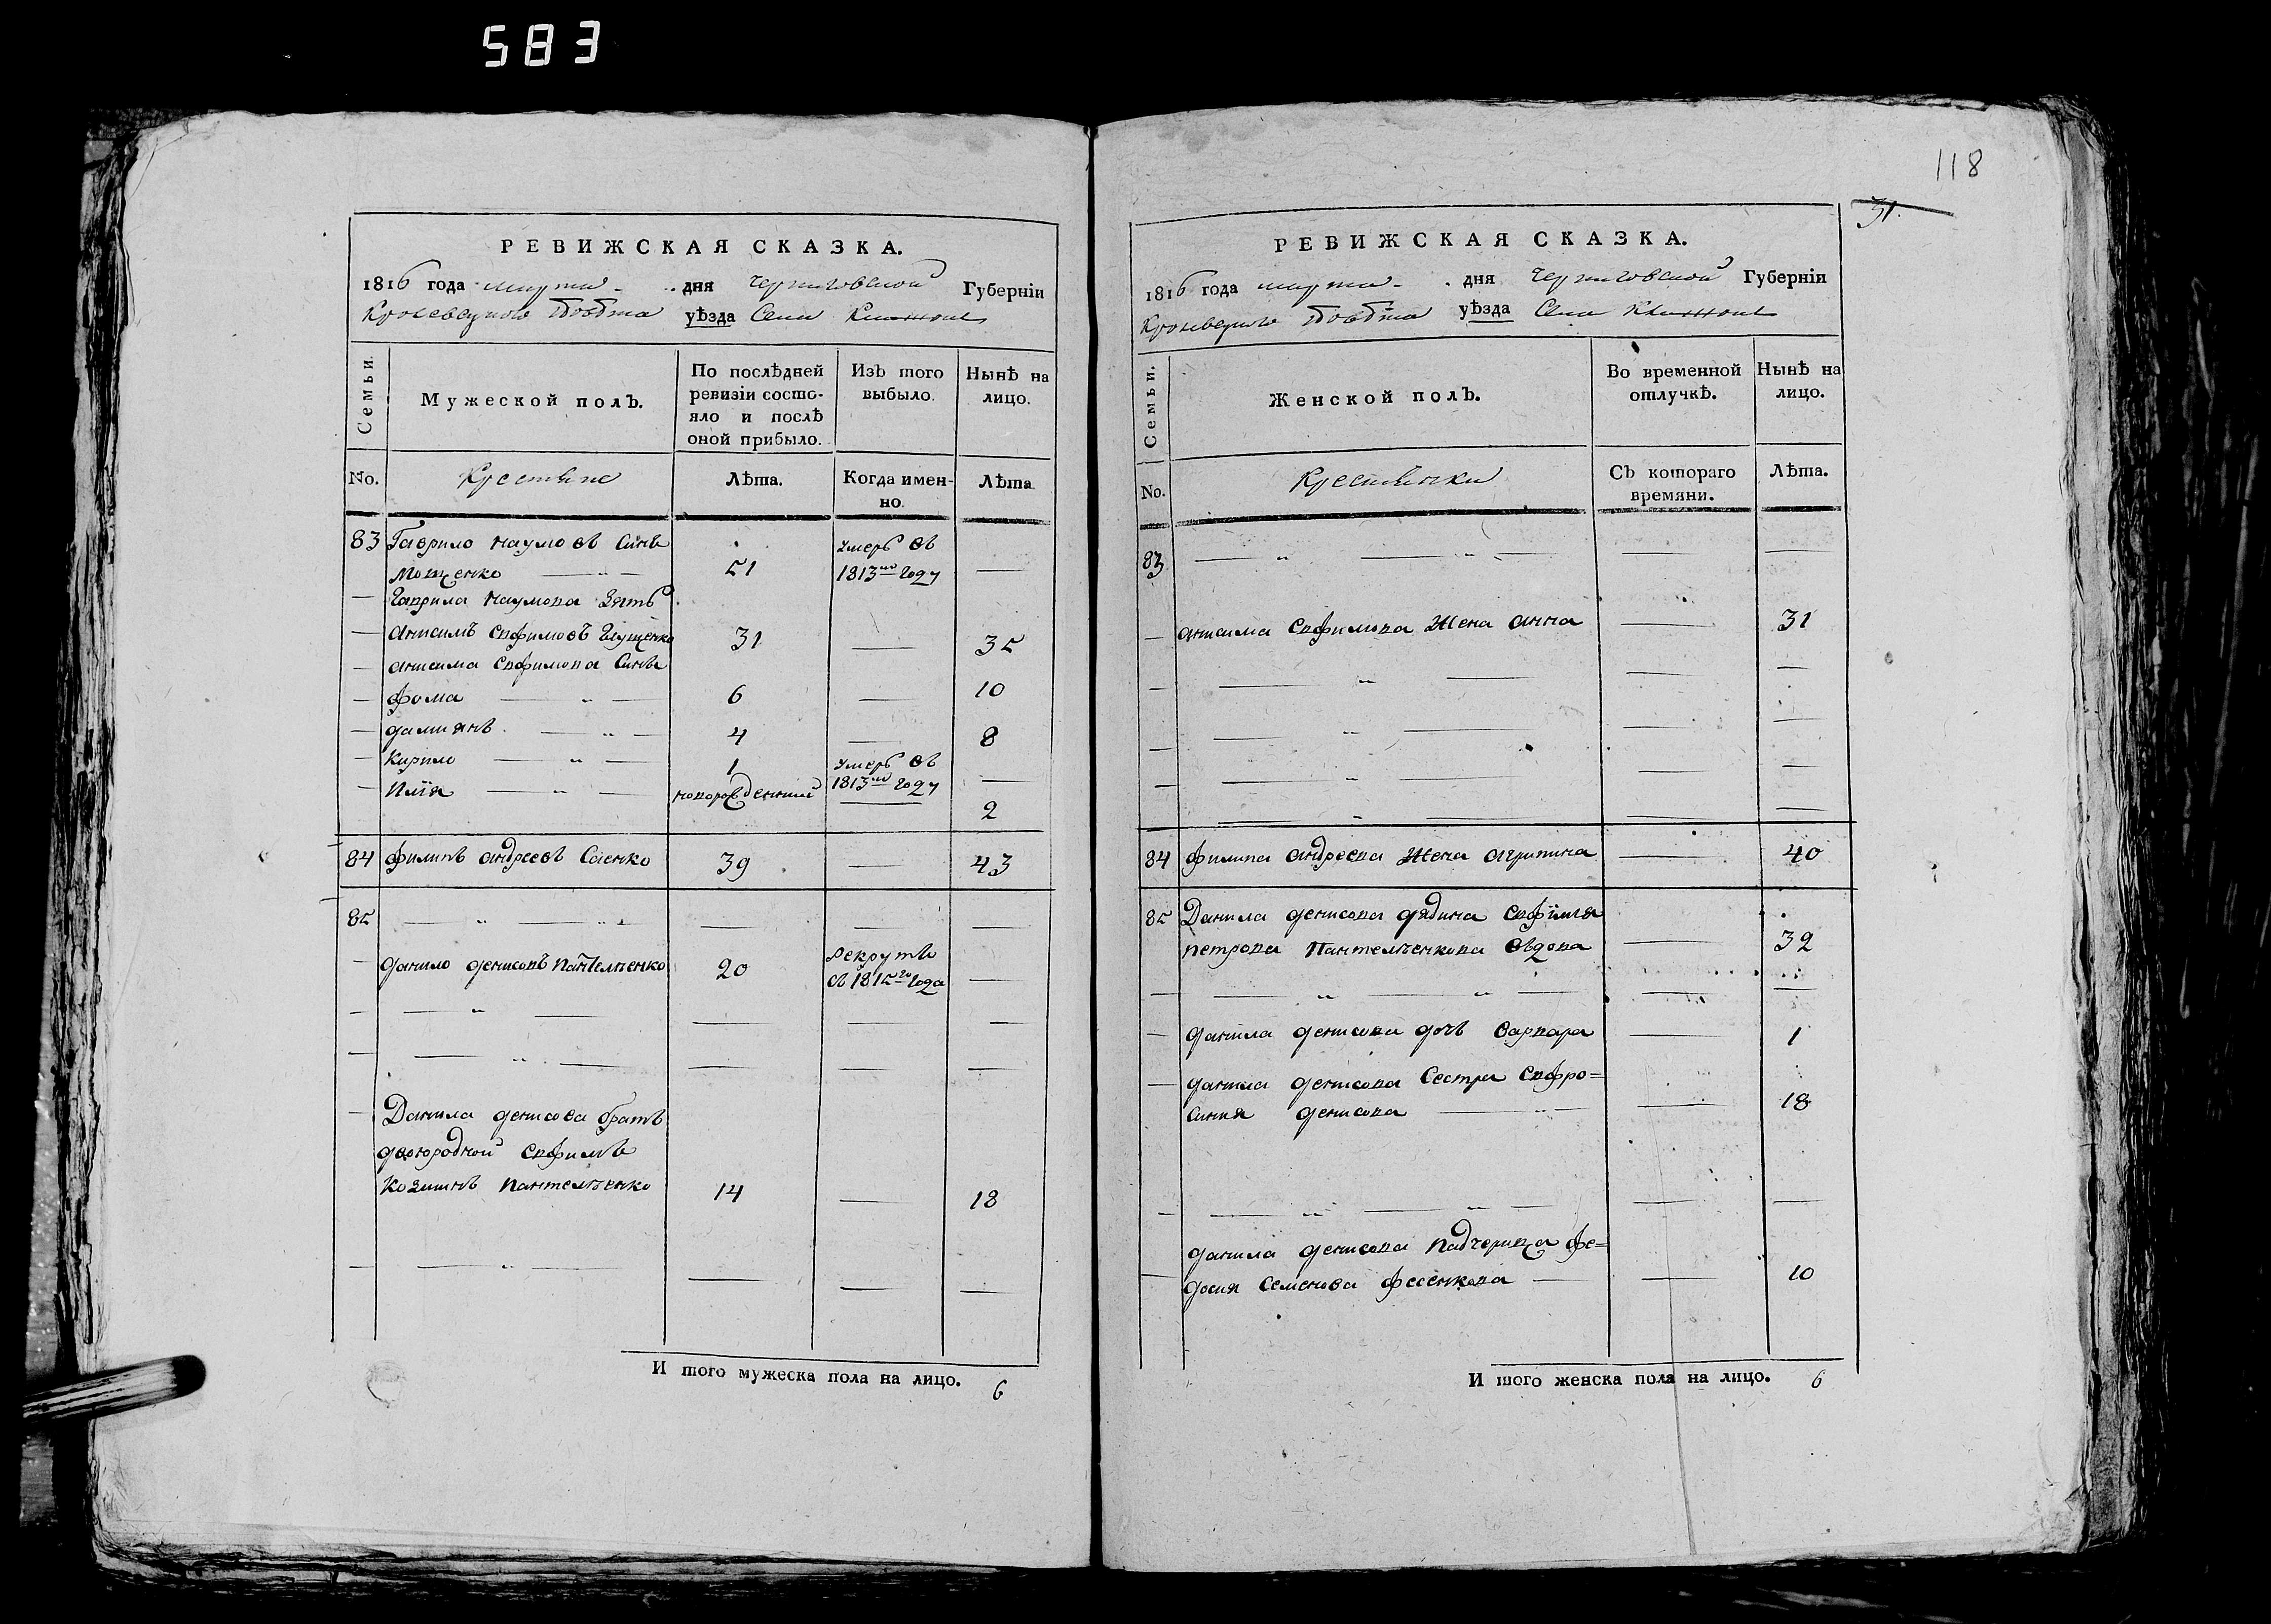 583
РЕВИЖСКАЯ СКАЗКА.
1816 года марта дня Черниговской Губернїи
Кролевецкого повѣта уѣзда Села
Семьи.
Мужеской полъ.
По послѣдней ревизїи состо-
яло и послѣ
оной прибыло.
Изъ того выбыло.
Нынѣ на лицо.
No.
Крестьяне
Лѣта.
Когда имен-
но.
Лѣта
83 Гаврило наумовъ Синъ умеръ въ
Мощенко 51 1813мъ году
Гаврила наумова Зять
анисимъ Евфимовъ Глущенко 31 35
анисима Евфимова Сины
фома 6 10
дамиянъ 4 8
Кирило 1 умеръ въ
1813мъ году
Илїя новорожденний 2
84 филипъ андреевъ Саенко 39 43
85
данило денисовъ Пантелѣенко 20 рекрутъ
съ 1815го года
Данила денисова братъ
двоюродной Евфимъ
Козминъ Пантелѣенко 14 18
И того мужеска пола на лицо. 6
118
31.
РЕВИЖСКАЯ СКАЗКА.
1816 года марта дня Черниговской Губернїи
Кролевецкого повѣта уѣзда Села
Семьи.
Женской полъ.
Во временной
отлучкѣ.
Нынѣ на
лицо.
No.
Крестьянки
Съ котораго
времяни.
Лѣта.
83
анисима Евфимова Жена анна 31
84 филипа андреева Жена агрипина 40
85 Данила денисова дядина Евфимїя
петрова Пантелѣенкова вдова 32
данила денисова дочъ варвара 1
данила денисова Сестра Евфро=
синия денисова 18
данила денисова падчерица фе=
досия Семенова фесенкова 10
И того женска пола на лицо. 6